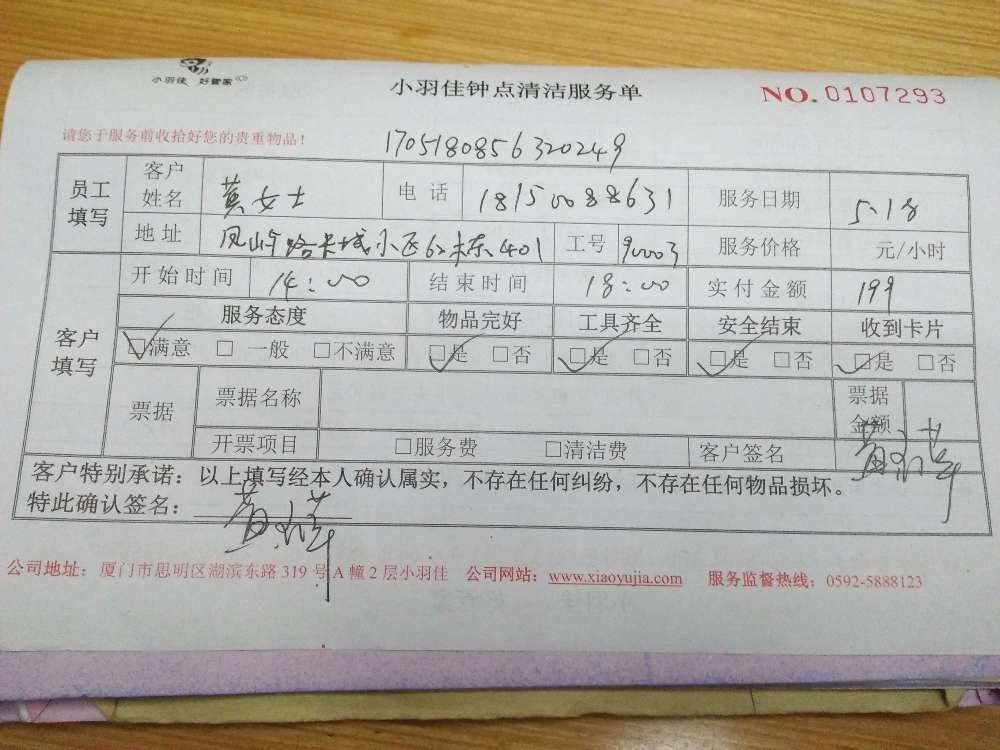 小羽佳 好管家
小羽佳钟点清洁服务单
NO. 0107293
请您于服务前收拾好您的贵重物品！
170518085632０249
员工填写 客户姓名 黄女士 电话 18150088631 服务日期 5.18
地址 凤屿路卡城小区62栋401 工号 90003 服务价格 元/小时
客户填写 开始时间 14:00 结束时间 18:00 实付金额 199
服务态度 物品完好 工具齐全 安全结束 收到卡片
☑满意 □一般 □不满意 ☑是 □否 ☑是 □否 ☑是 □否 ☑是 □否
票据 票据名称 票据金额
开票项目 □服务费 □清洁费 客户签名
客户特别承诺：以上填写经本人确认属实，不存在任何纠纷，不存在任何物品损坏。
特此确认签名：
公司地址：厦门市思明区湖滨东路 319 号 A 幢 2 层小羽佳 公司网站：www.xiaoyujia.com 服务监督热线：0592-5888123